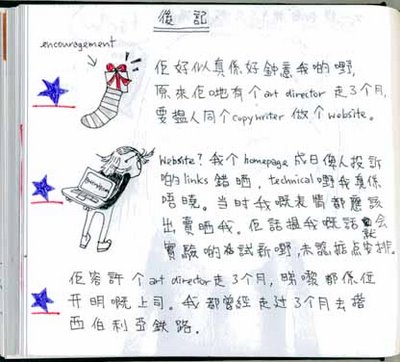 後記
encouragement
佢好似真係好鍾意我啲嘢,
原來佢哋有个art director 走3个月,
要搵人同个copywriter 做个website。
Website? 我个homepage 成日俾人投訴
啲links 錯晒, technical嘢我真係
唔曉。当时我嘅表情都應該
出賣晒我。佢話搵我嘅話就會
實驗啲試新嘢,未認掂点安排。
佢容許个art director走3个月, 睇嚟都係位
开明嘅上司。我都曾經走过3个月去搭
西伯利亞鉄路。